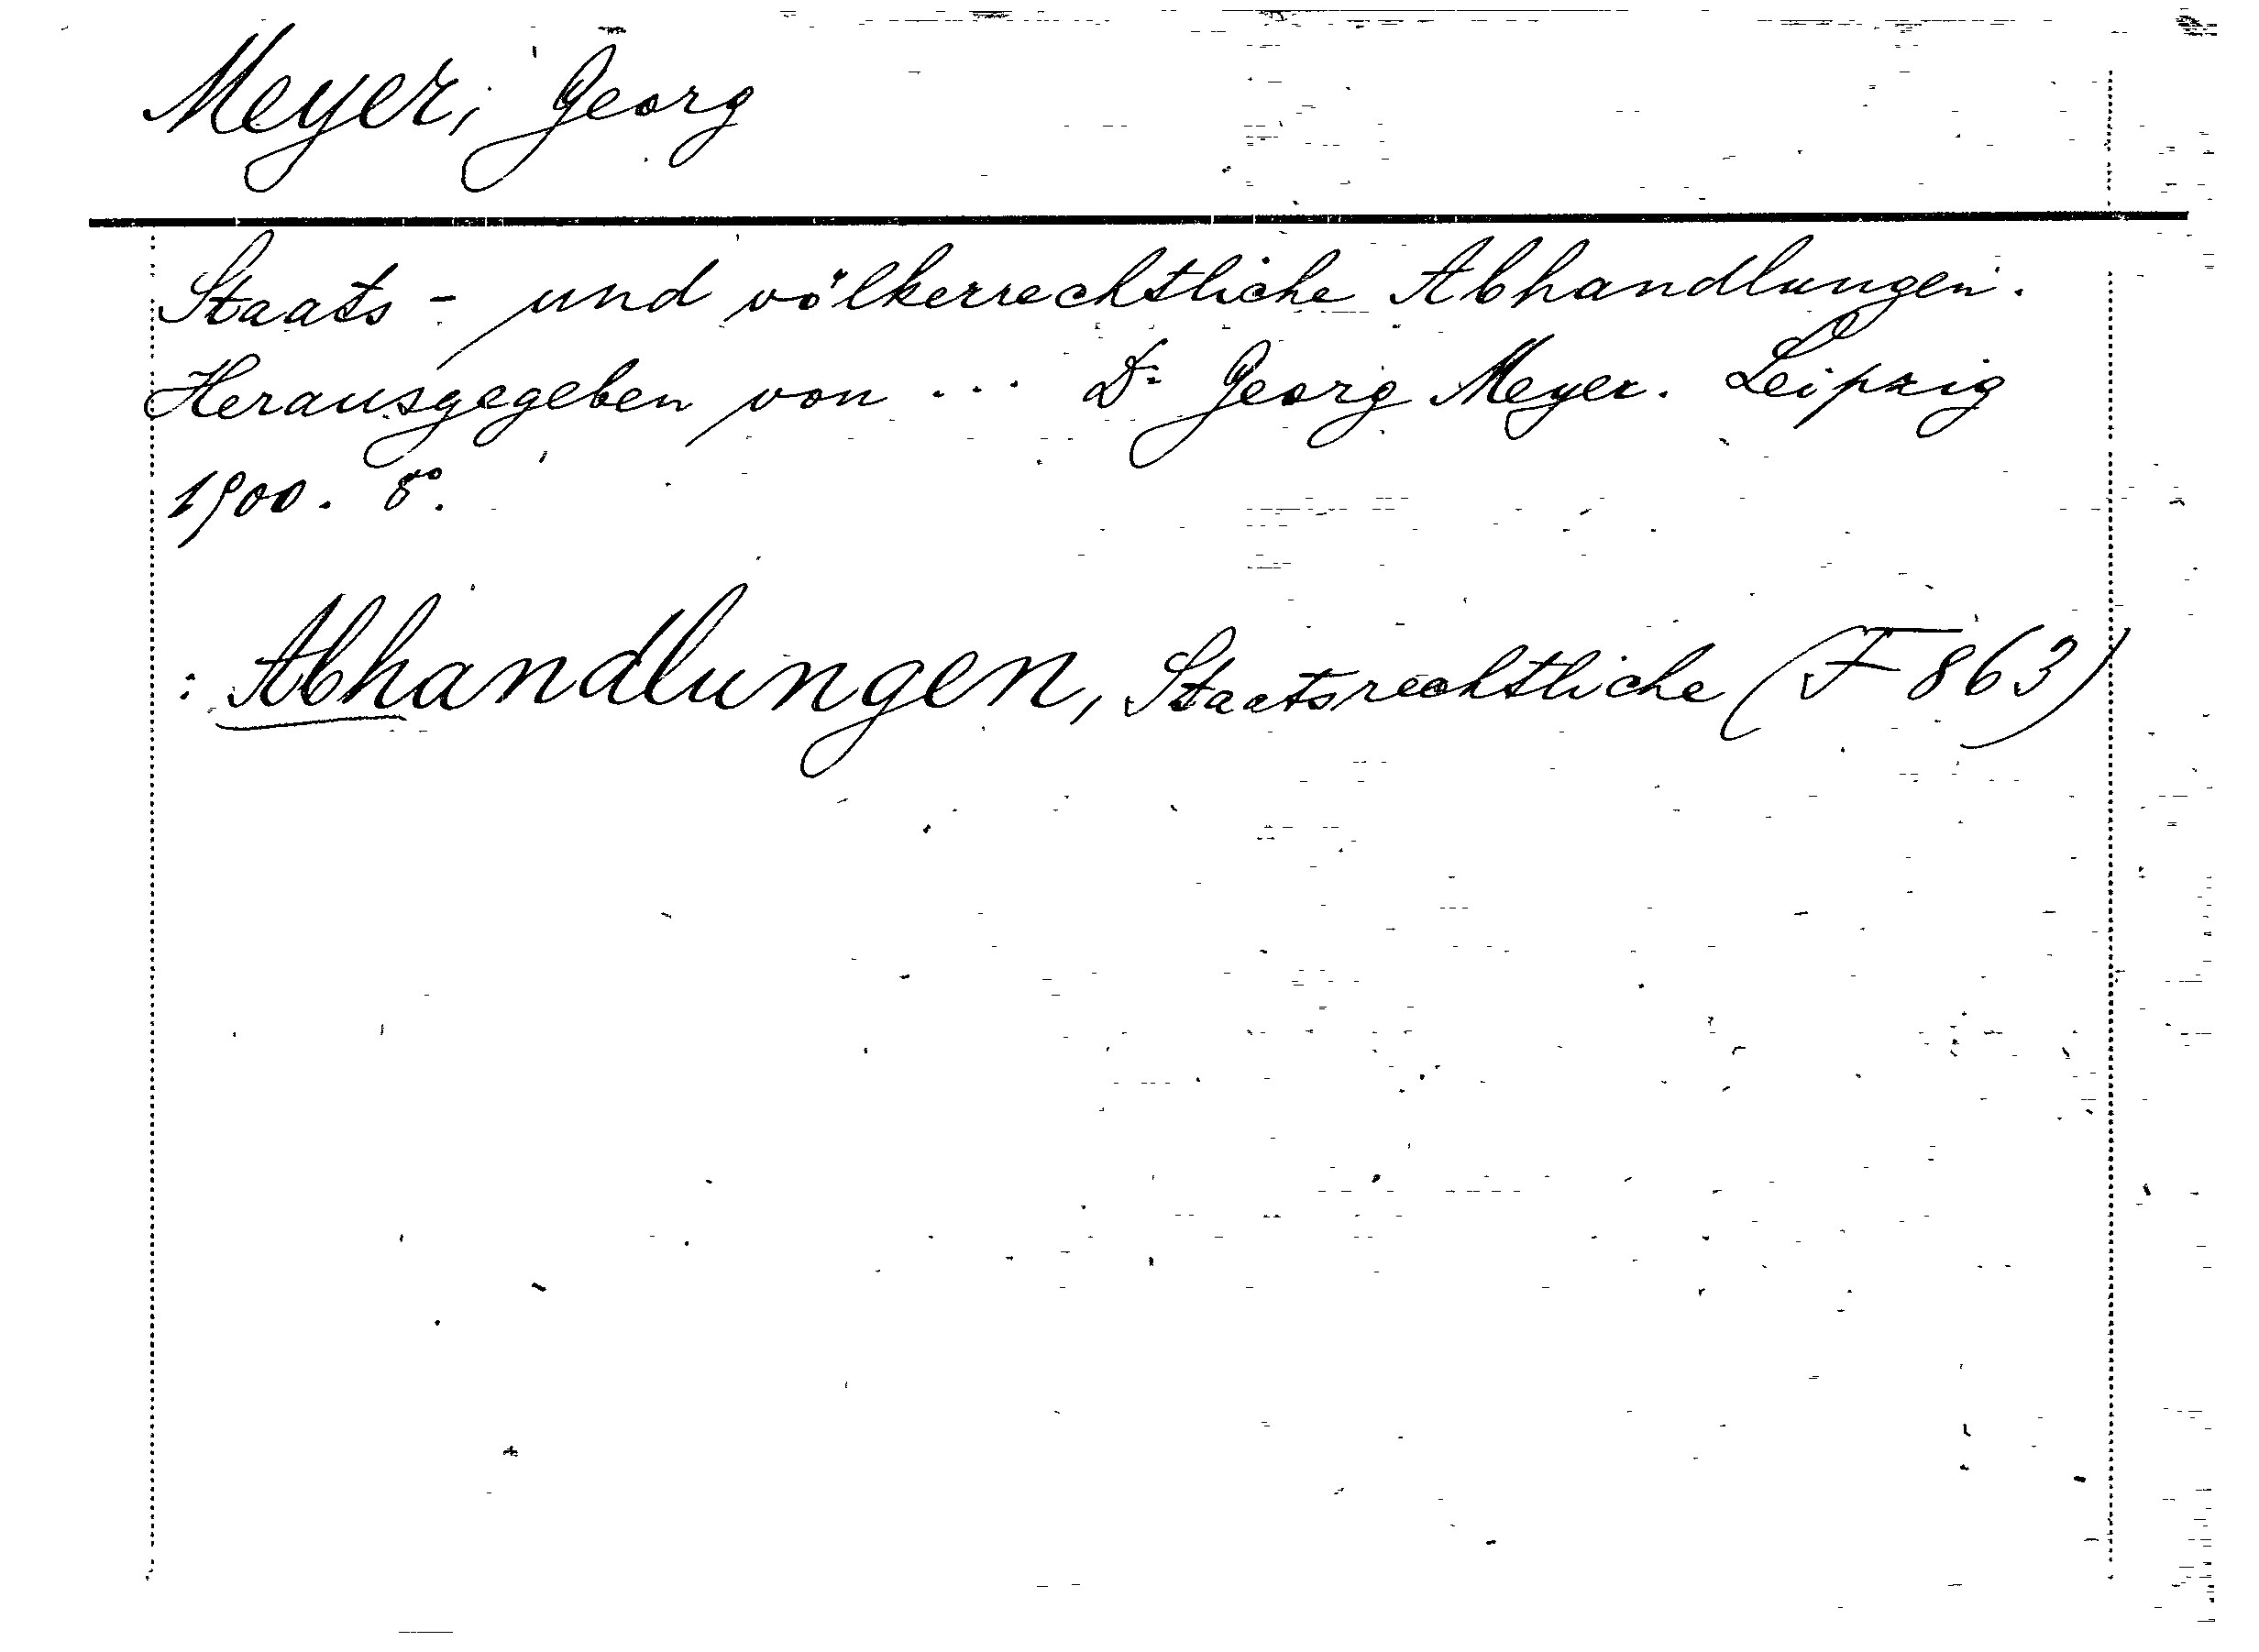 Meyer, Georg
Staats- und völkerrechtliche Abhandlungen.
Herausgegeben von ... Dr Georg Meyer. Leipzig
1900. 8°.
: Abhandlungen, Staatsrechtliche (F 863)